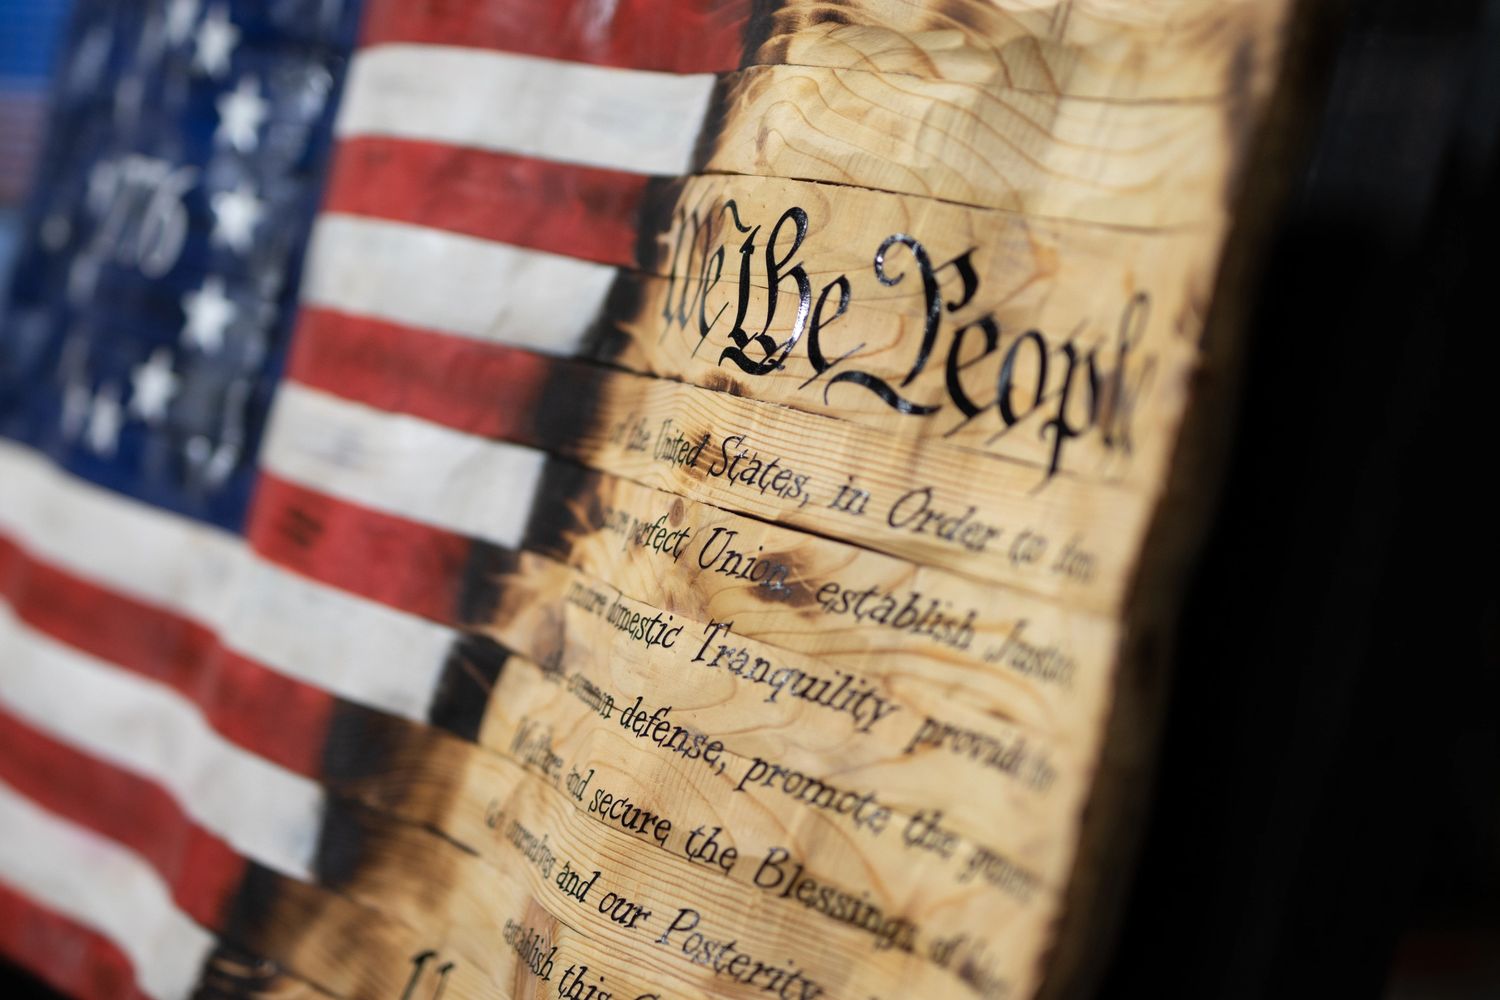 1776
We the People
of the United States, in Order to form
more perfect Union, establish Justice,
insure domestic Tranquility provide
common defense, promote the general
Welfare, and secure the Blessings of
to ourselves and our Posterity,
establish this